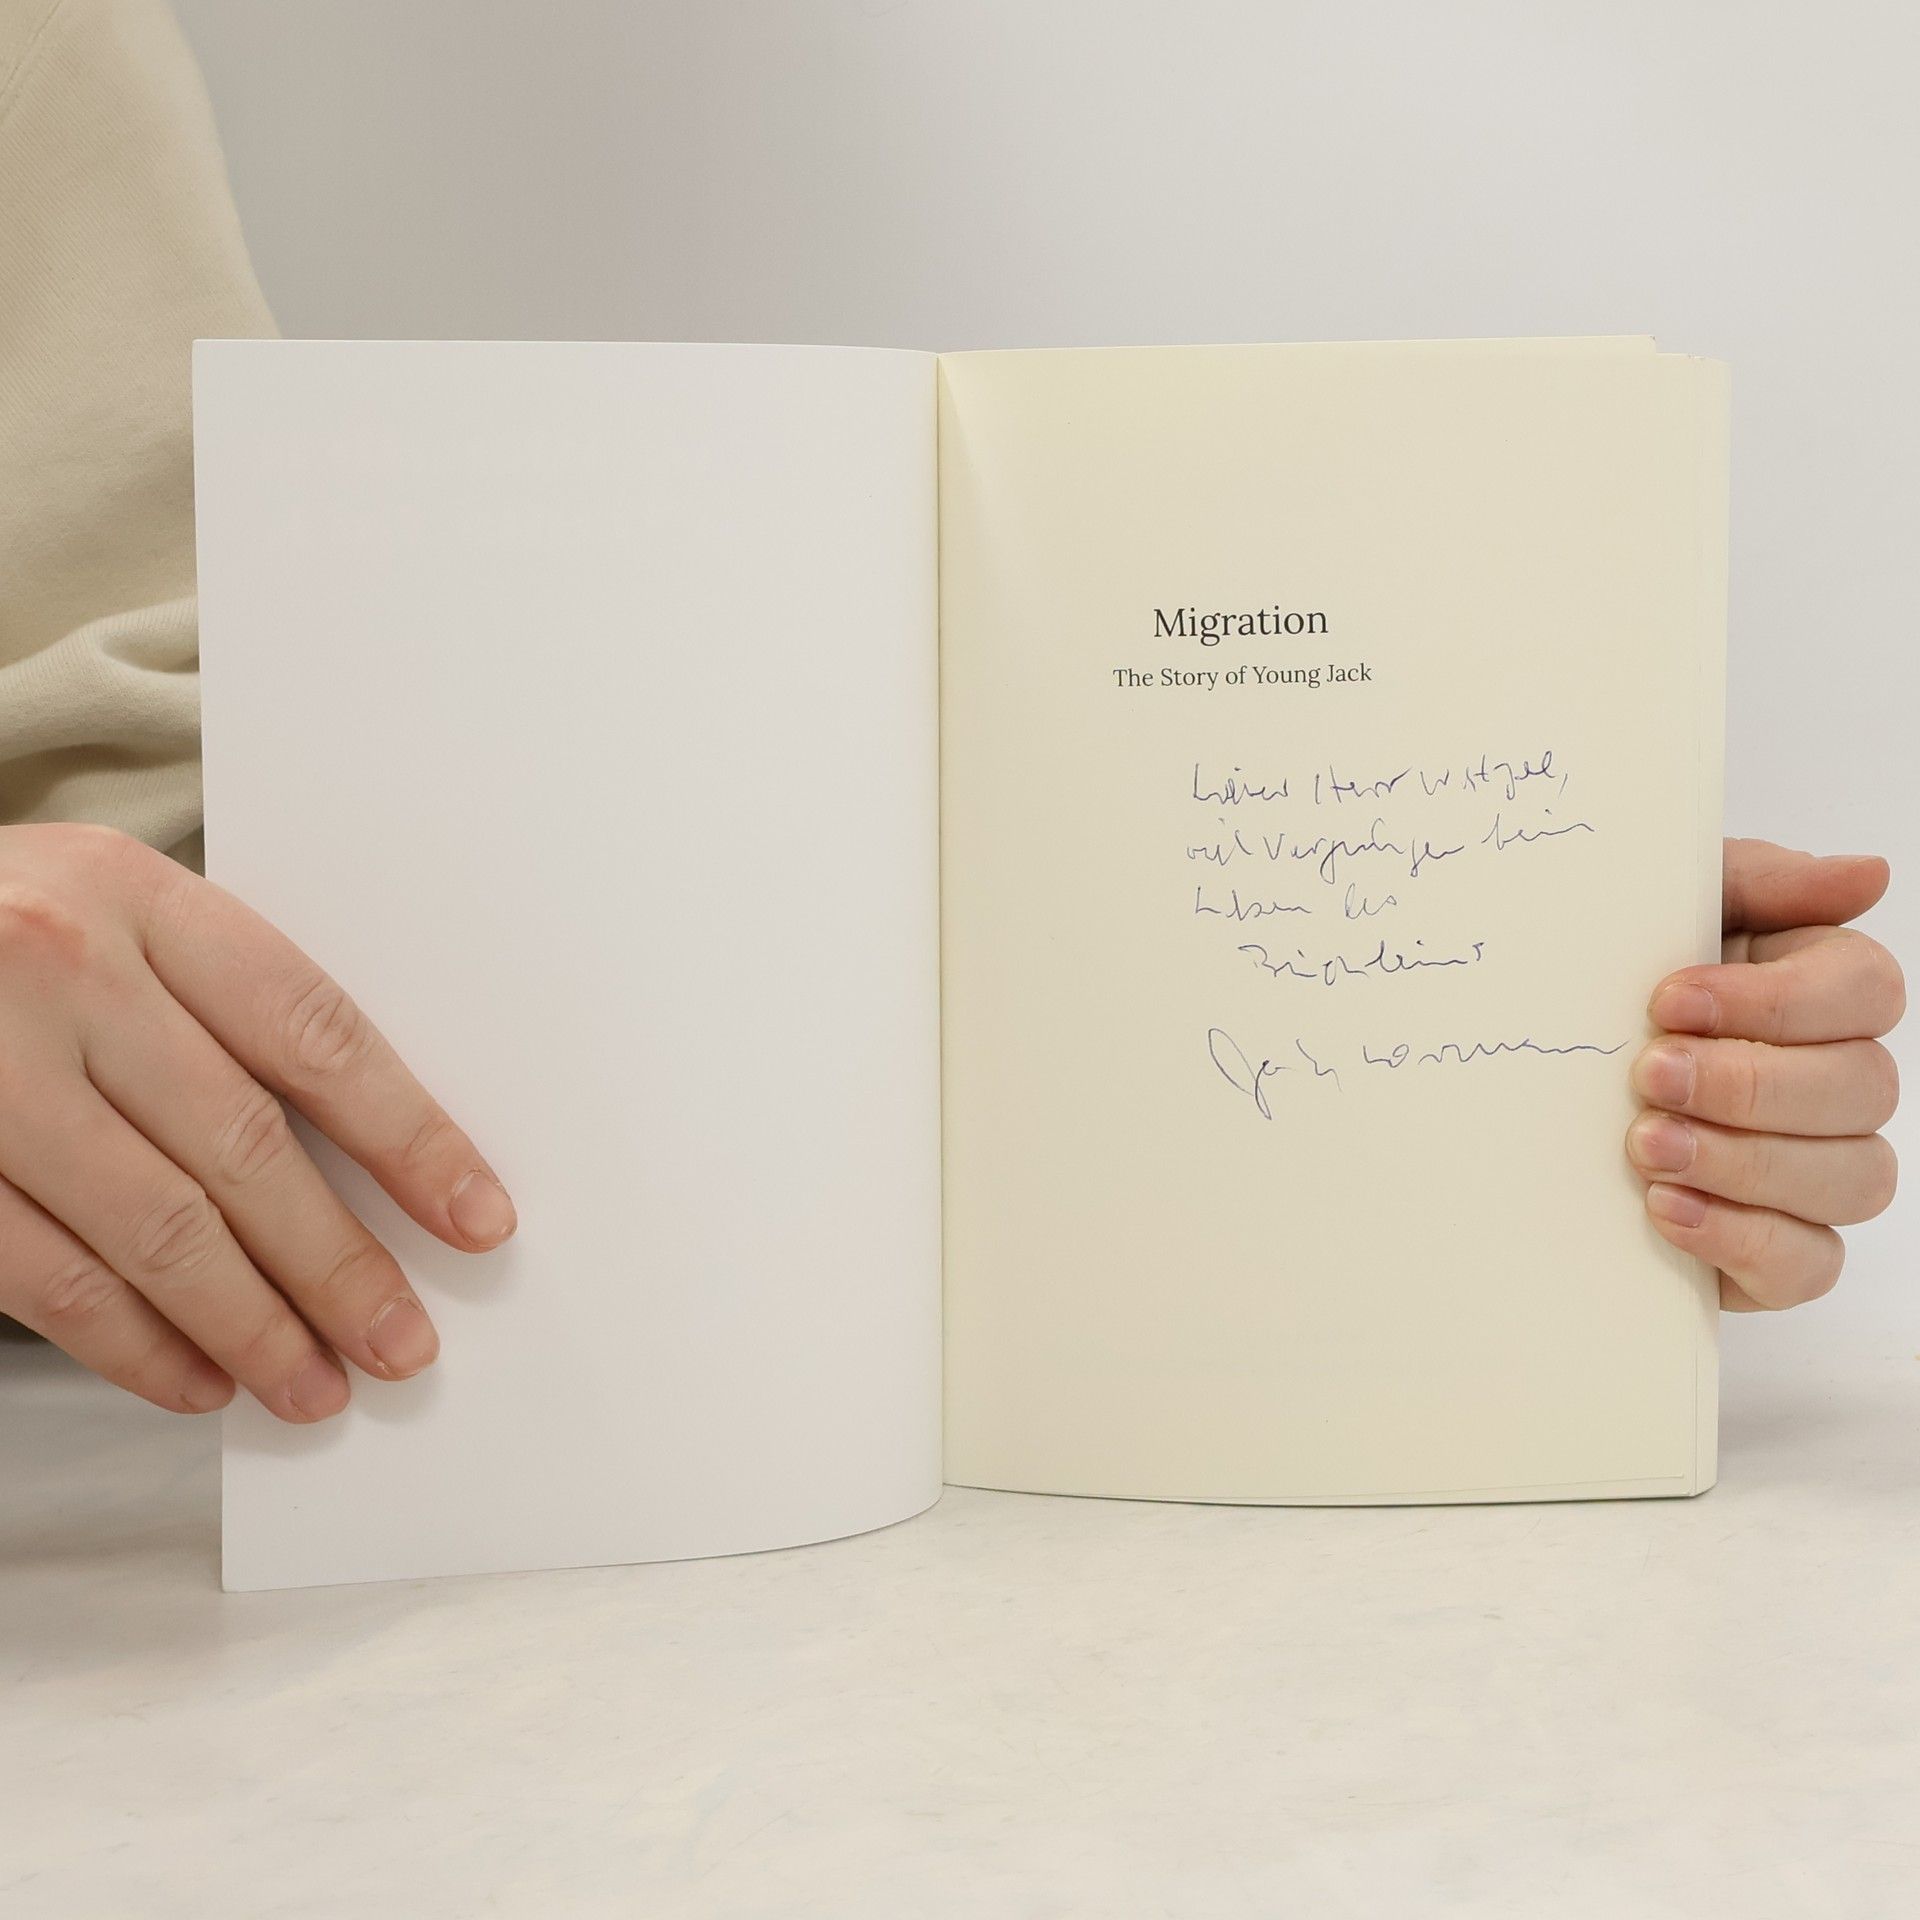 Migration
The Story of Young Jack
Lieber Herr
viel Vergnügen beim
Lesen des
Büchleins
Jack